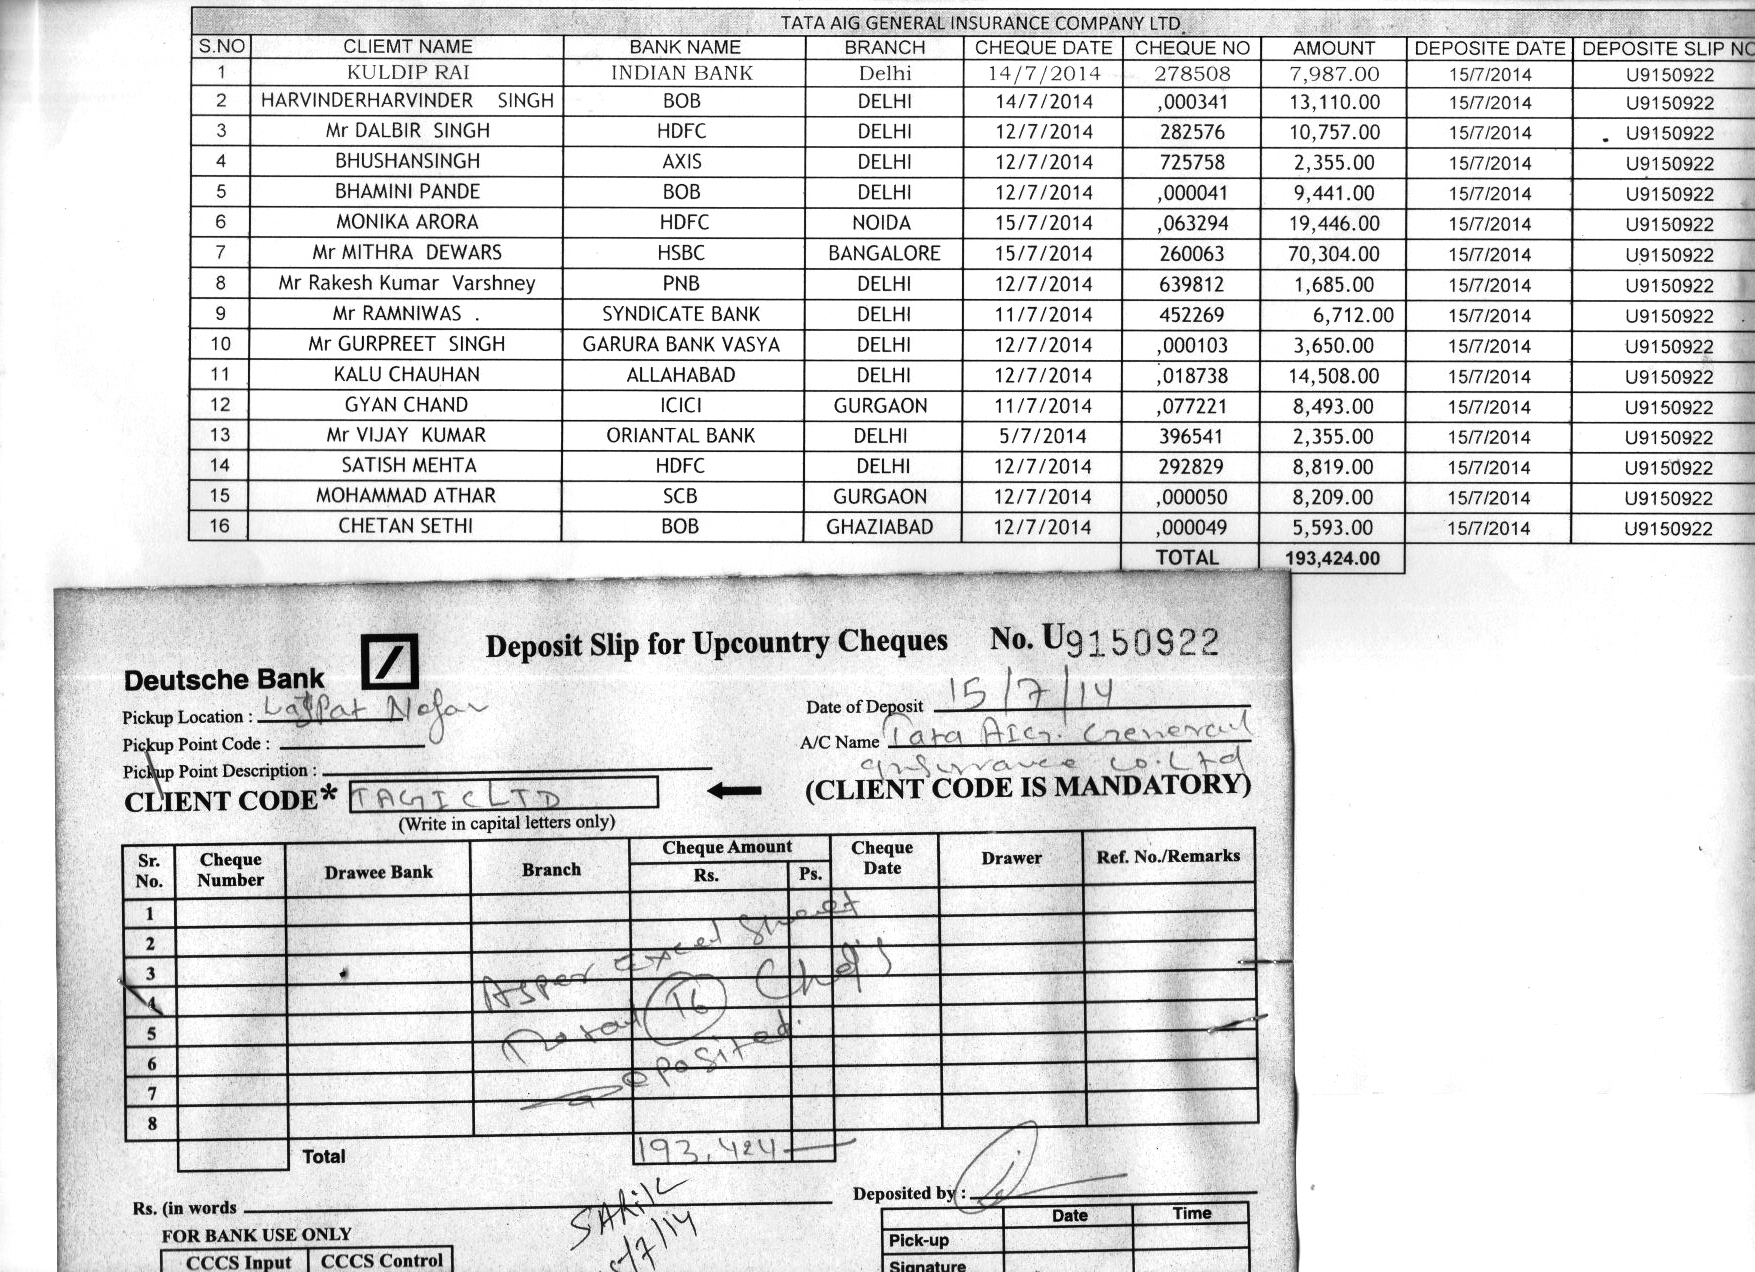 TATA AIG GENERAL INSURANCE COMPANY LTD.
S.NO CLIEMT NAME BANK NAME BRANCH CHEQUE DATE CHEQUE NO AMOUNT DEPOSITE DATE DEPOSITE SLIP NO
1 KULDIP RAI INDIAN BANK Delhi 14/7/2014 278508 7,987.00 15/7/2014 U9150922
2 HARVINDERHARVINDER SINGH BOB DELHI 14/7/2014 ,000341 13,110.00 15/7/2014 U9150922
3 Mr DALBIR SINGH HDFC DELHI 12/7/2014 282576 10,757.00 15/7/2014 U9150922
4 BHUSHANSINGH AXIS DELHI 12/7/2014 725758 2,355.00 15/7/2014 U9150922
5 BHAMINI PANDE BOB DELHI 12/7/2014 ,000041 9,441.00 15/7/2014 U9150922
6 MONIKA ARORA HDFC NOIDA 15/7/2014 ,063294 19,446.00 15/7/2014 U9150922
7 Mr MITHRA DEWARS HSBC BANGALORE 15/7/2014 260063 70,304.00 15/7/2014 U9150922
8 Mr Rakesh Kumar Varshney PNB DELHI 12/7/2014 639812 1,685.00 15/7/2014 U9150922
9 Mr RAMNIWAS . SYNDICATE BANK DELHI 11/7/2014 452269 6,712.00 15/7/2014 U9150922
10 Mr GURPREET SINGH GARURA BANK VASYA DELHI 12/7/2014 ,000103 3,650.00 15/7/2014 U9150922
11 KALU CHAUHAN ALLAHABAD DELHI 12/7/2014 ,018738 14,508.00 15/7/2014 U9150922
12 GYAN CHAND ICICI GURGAON 11/7/2014 ,077221 8,493.00 15/7/2014 U9150922
13 Mr VIJAY KUMAR ORIANTAL BANK DELHI 5/7/2014 396541 2,355.00 15/7/2014 U9150922
14 SATISH MEHTA HDFC DELHI 12/7/2014 292829 8,819.00 15/7/2014 U9150922
15 MOHAMMAD ATHAR SCB GURGAON 12/7/2014 ,000050 8,209.00 15/7/2014 U9150922
16 CHETAN SETHI BOB GHAZIABAD 12/7/2014 ,000049 5,593.00 15/7/2014 U9150922
TOTAL 193,424.00
Deposit Slip for Upcountry Cheques No. U9150922
Deutsche Bank
Pickup Location : Lajpat Nagar Date of Deposit 15/7/14
Pickup Point Code : A/C Name Tata AIG. General
Pickup Point Description : Insurance Co. Ltd
CLIENT CODE* TAGICLTD (CLIENT CODE IS MANDATORY)
(Write in capital letters only)
Sr. No. Cheque Number Drawee Bank Branch Cheque Amount Rs. Ps. Cheque Date Drawer Ref. No./Remarks
1
2
3
4
5
6
7
8
As per Excel Sheet
Total 16 Chq's
Deposited.
Total 193,424
Rs. (in words Deposited by :
Date Time
FOR BANK USE ONLY
Pick-up
CCCS Input CCCS Control
Signature